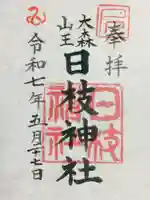 奉拝
大森
山王
日枝神社
日枝
神社
令和七年五月二十七日